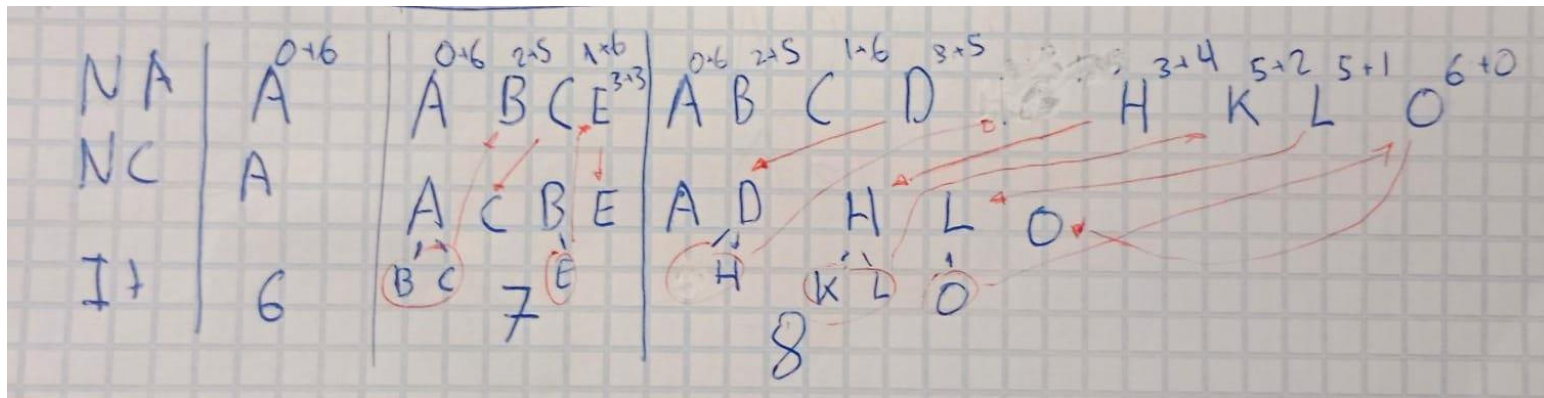 NA A 0+6 A 0+6 B 2+5 C 1+6 E 3+3 A 0+6 B 2+5 C 1+6 D 3+5 H 3+4 K 5+2 L 5+1 O 6+0
NC A A C B E A D H L O
B C E H K L O
It 6 7 8